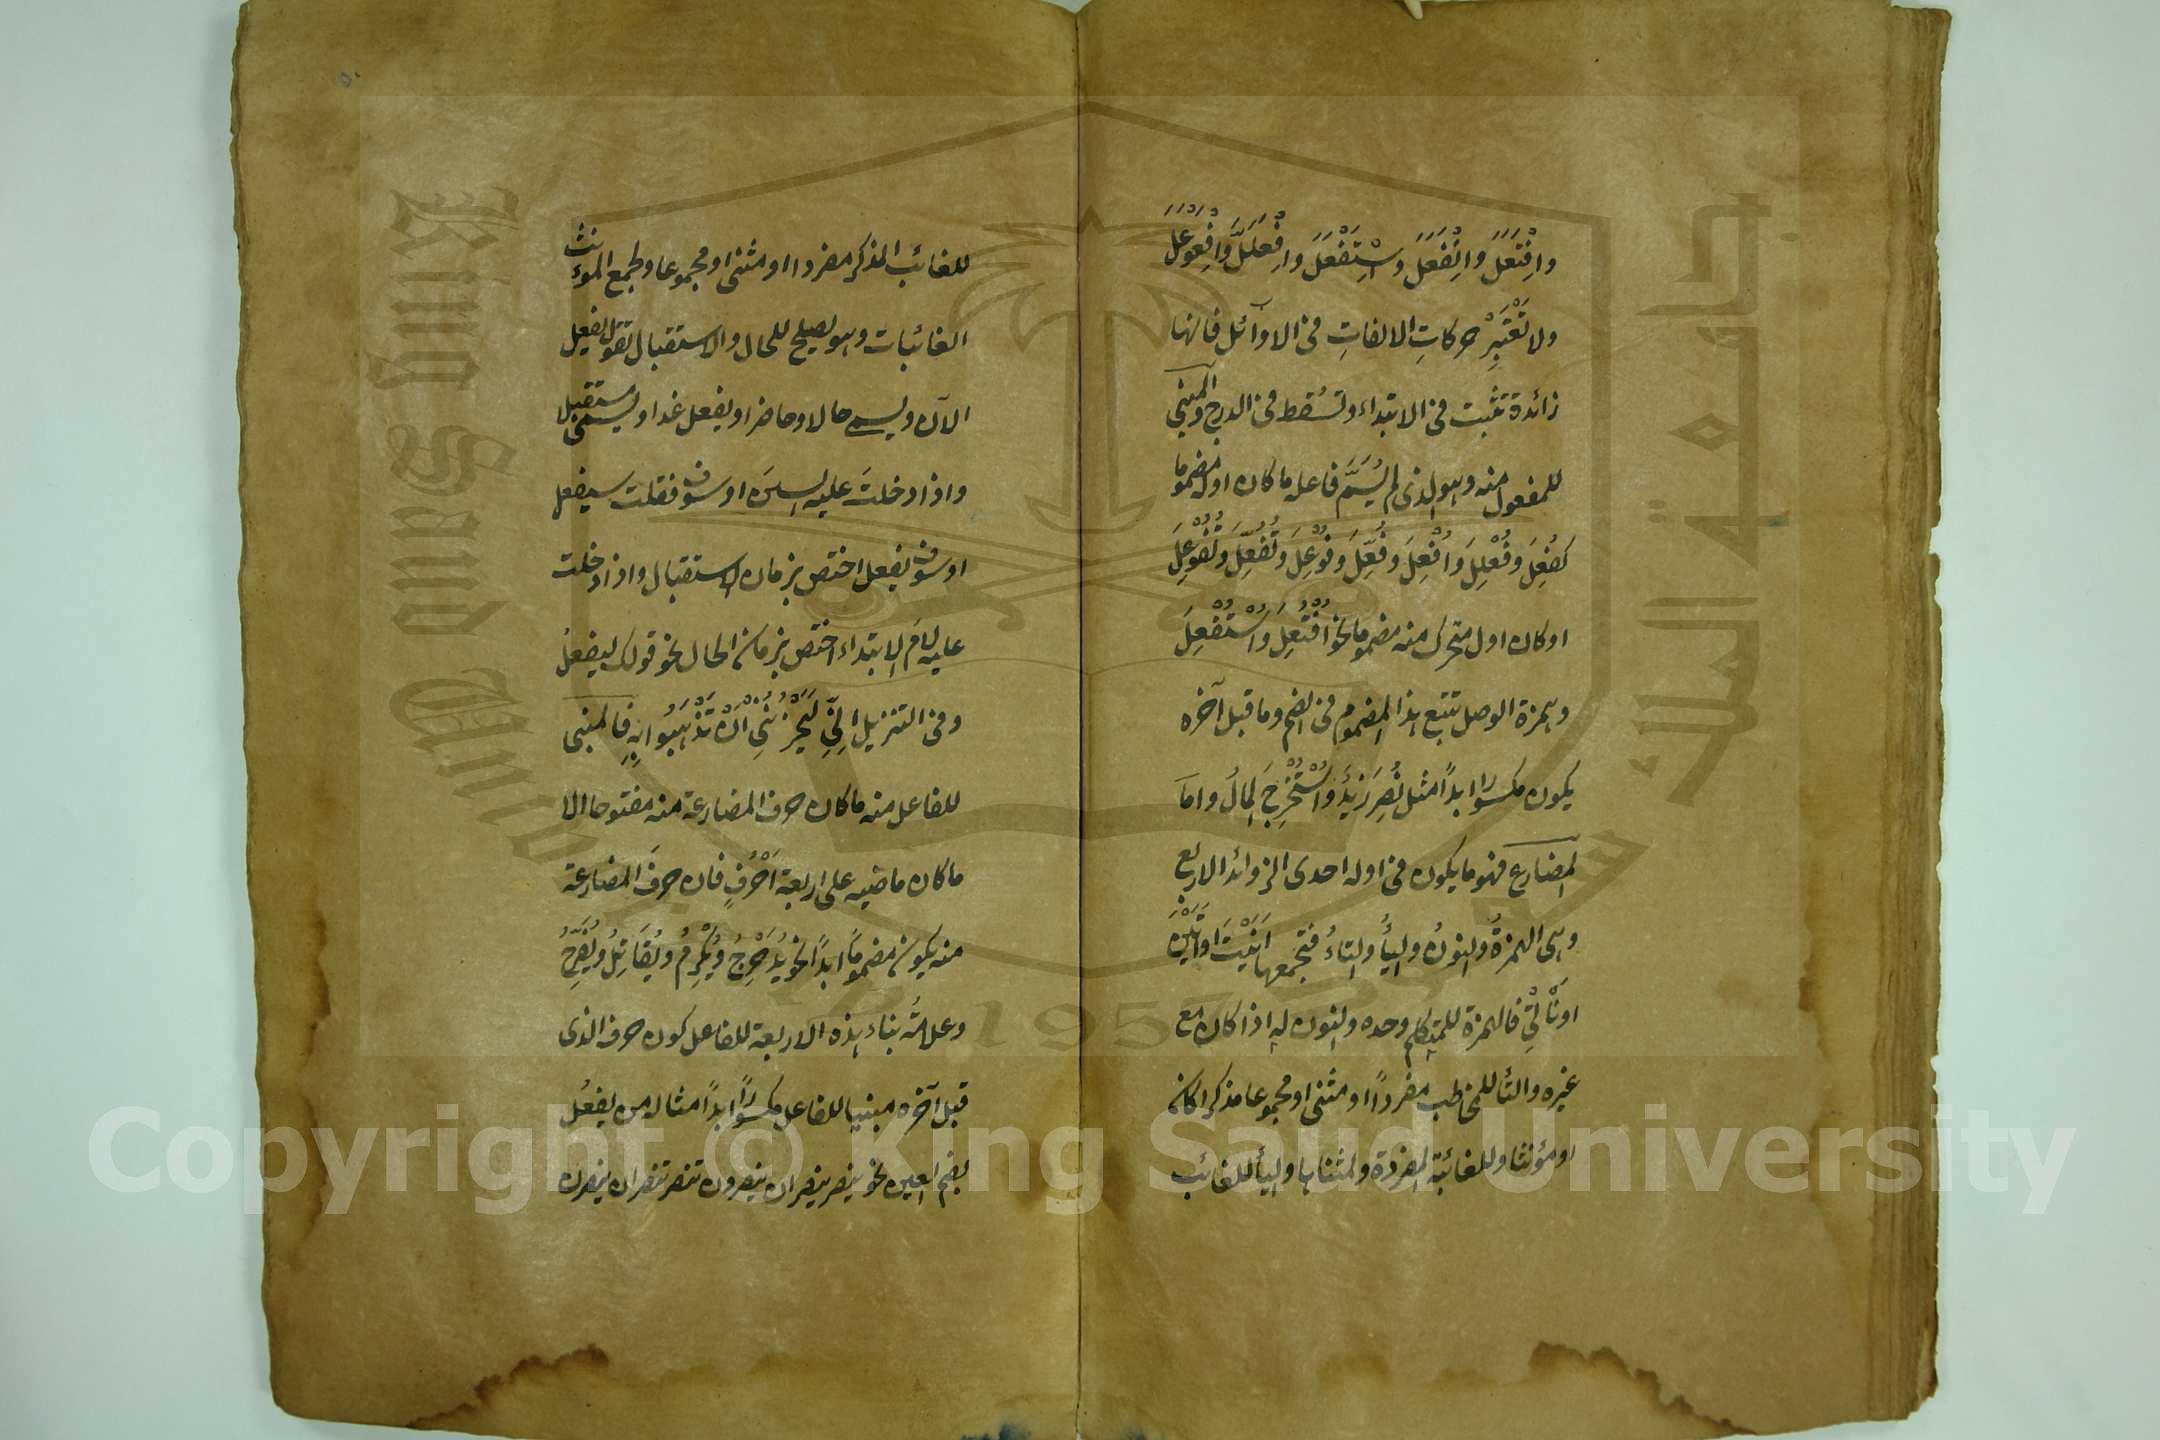 وافْتَعَلَ وانْفَعَلَ واسْتَفْعَلَ وافْعَلَلَّ وافْعَوْعَلَ
ولا تَعْتَبِرْ حركاتِ الالفاتِ فى الاوآئل فانها
زائدة تثبت فى الابتداء وتسْقط فى الدرج والمبنى
للمفعول منه وهو الذى لم يُسَمَّ فاعله ما كان اوله مضموما
كفُعِلَ وفُعْلِلَ واُفْعِلَ وفُعِّلَ وفُوْعِلَ وتُفُعِّلَ وتُفُوْعِلَ
او كان اول متحرك منه مضموما نحو اُفْتُعِلَ واُسْتُفْعِلَ
وهمزة الوصل تتبع هذا المضموم فى الضم وما قبل آخره
يكون مكسورًا ابدًا مثل نُصِرَ زيدٌ واُسْتُخْرِجَ المالُ واما
المضارع فهو ما يكون فى اوله احدى الزوائد الاربع
وهى الهمزةُ والنونُ واليأُ والتاءُ فتجمعها اَنَيْتَ او اَتَيْنَ
او نَأْتِى فالهمزة للمتكلم وحده والنون له اذا كان مع
غيره والتأ للمخاطب مفردًا او مثنى او مجموعا مذكرا كان
او مؤنثا وللغائبة المفردة ولمثناها واليأ للغائب
للغائب المذكر مفردا او مثنى او مجموعا ولجمع المؤنث
الغائبات وهو يصلح للحال والاستقبال تقول يفعل
الآن ويسمى حالا وحاضرا ويفعل غدا ويسمى مستقبلا
واذا دخلتَ عليه السينَ او سوف فقلت سيفعل
او سوف يفعل اختص بزمان الاستقبال واذا دخلت
عليه لامَ الابتداء اختص بزمان الحال نحو قولك ليفعلُ
وفى التنزيل اِنِّى لَيَحْزُنُنِى اَنْ تَذْهَبُوا بِهِ فالمبنى
للفاعل منه ما كان حرف المضارعة منه مفتوحا الا
ما كان ماضيه على اربعة اَحْرُفٍ فان حرفَ المضارعة
منه يكون مضمومًا ابدًا نحو يُدَحْرِجُ ويُكْرِمُ ويُقَاتِلُ ويُفَرِّحُ
وعلامةُ بناء هذه الاربعة للفاعل كون حرف الذى
قبل آخره مبنيا للفاعل مكسورًا ابدًا مثاله من يفعُل
بضم العين نحو ينصر ينصران ينصرون تنصر تنصران ينصرن
Copyright © King Saud University
King Saud University
جامعة الملك سعود
1957